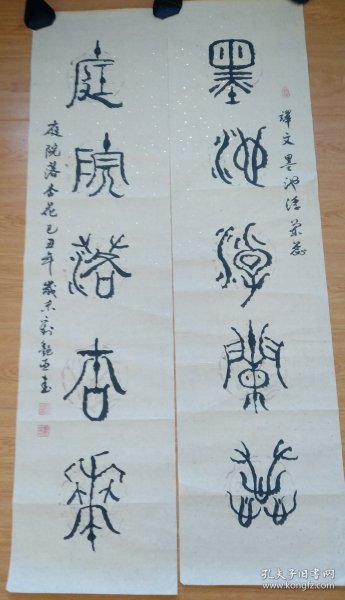 墨池浮蘭蕊
譯文 墨池浮兰蕊
庭院落杏華
庭院落杏花 己丑年 歲末
孔夫子旧书网